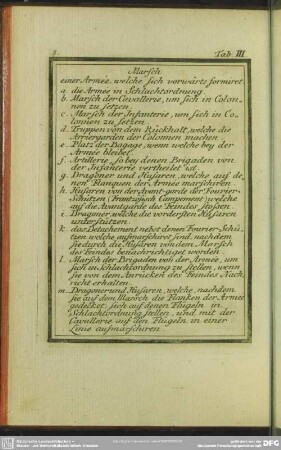 8.
Tab. III
Marsch
einer Armée, welche sich vorwärts formiret
a. die Armée in Schlachtordnung.
b. Marsch der Cavallerie, um sich in Colon-
nen zu setzen.
c. Marsch der Infanterie, um sich in Co-
lonnen zu setzen.
d. Truppen von dem Rückhalt, welche die
Arriergarden der Colonnen machen
e. Platz der Bagage, wenn welche bey der
Armée bleibet.
f. Artillerie so bey denen Brigaden von
der Infanterie vertheilet sd.
g. Dragoner und Husaren, welche auf de-
nen Flanquen der Armée marschiren
h. Husaren von der Avant-garde der Fourier-
Schützen (Französisch Campement) welche
auf die Avantgarde des Feindes stossen.
i. Dragoner welche die vordersten Husaren
unterstützen.
k. das Detachement nebst denen Fourier-Schü-
tzen welche aufmarschiret sind, nachdem
sie durch die Husaren von dem Marsch
des Feindes benachrichtiget worden
l. Marsch der Brigaden von der Armée, um
sich in Schlachtordnung zu stellen, wenn
sie von dem Anrücken des Feindes Nach-
richt erhalten
m. Dragoner und Husaren, welche, nachdem
sie auf dem Marsch die Flanken der Armée
gedecket, sich auf denen Flügeln in
Schlachtordnung stellen, und mit der
Cavallerie auf den Flügeln in einer
Linie aufmarschiren